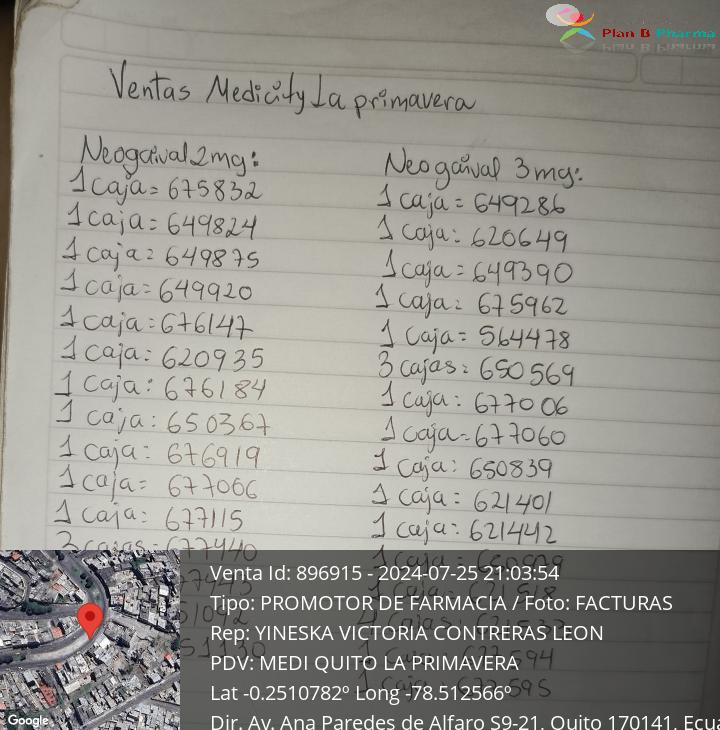 Plan B Pharma
Ventas Medicity La primavera
Neogaival 2mg:
1 caja = 675832
1 caja = 649824
1 caja = 649875
1 caja = 649920
1 caja = 676147
1 caja: 620935
1 caja: 676184
1 caja: 650367
1 caja: 676919
1 caja = 677066
1 caja: 677115
3 cajas = 677440
Neogaival 3mg:
1 caja = 649286
1 caja: 620649
1 caja = 649390
1 caja: 675962
1 caja = 564478
3 cajas: 650569
1 caja: 677006
1 caja = 677060
1 caja: 650839
1 caja: 621401
1 caja: 621442
Venta Id: 896915 - 2024-07-25 21:03:54
Tipo: PROMOTOR DE FARMACIA / Foto: FACTURAS
Rep: YINESKA VICTORIA CONTRERAS LEON
PDV: MEDI QUITO LA PRIMAVERA
Lat -0.2510782º Long -78.512566º
Dir. Av. Ana Paredes de Alfaro S9-21, Quito 170141, Ecua
Google